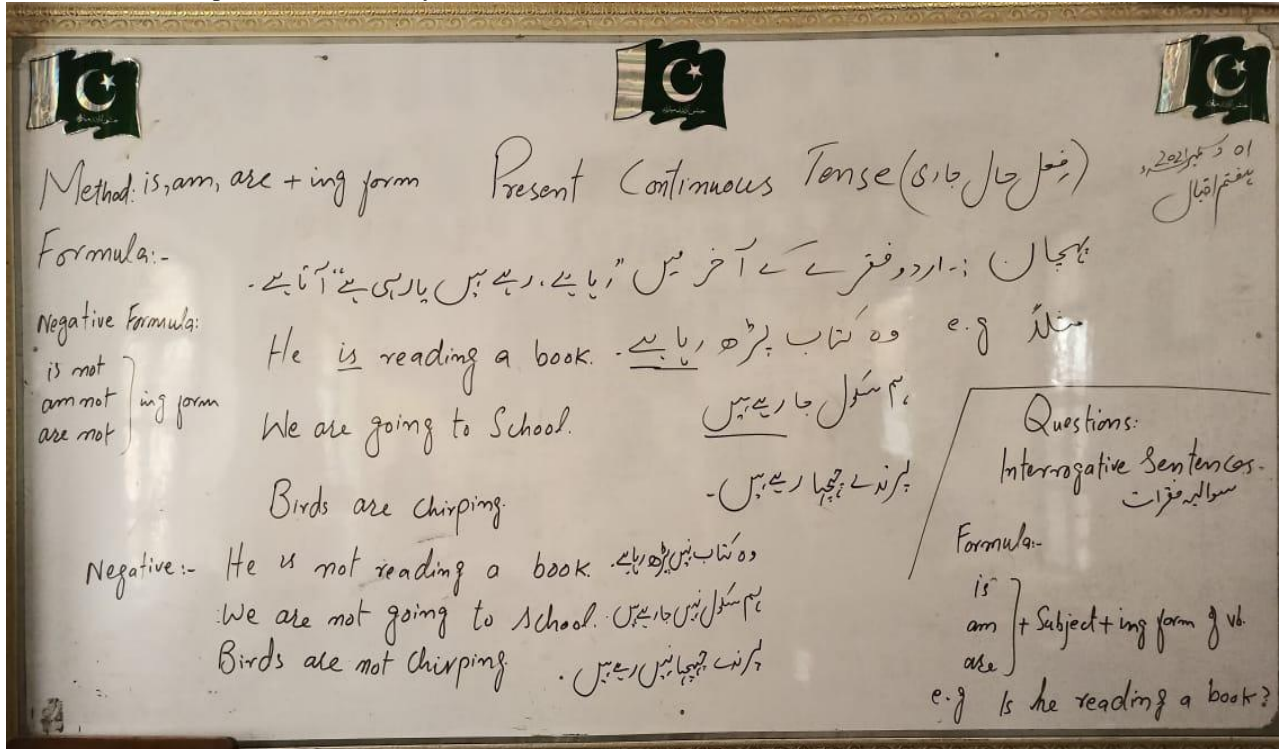 01 دسمبر 2021ء
ہفتم اقبال
Method: is, am, are + ing form
Present Continuous Tense (فعل حال جاری)
Formula:-
پہچان :۔ اردو فقرے کے آخر میں "رہا ہے، رہے ہیں یا رہی ہے" آتا ہے۔
Negative Formula:
is not
am not
are not
ing form
مثلاً e.g
He is reading a book. وہ کتاب پڑھ رہا ہے۔
We are going to School. ہم سکول جا رہے ہیں
Birds are chirping. پرندے چہچہا رہے ہیں۔
Negative:- He is not reading a book. وہ کتاب نہیں پڑھ رہا ہے۔
We are not going to school. ہم سکول نہیں جا رہے ہیں۔
Birds are not chirping. پرندے چہچہا نہیں رہے ہیں۔
Questions:
Interrogative Sentences.
سوالیہ فقرات
Formula:-
is
am
are
+ Subject + ing form of vb.
e.g Is he reading a book?